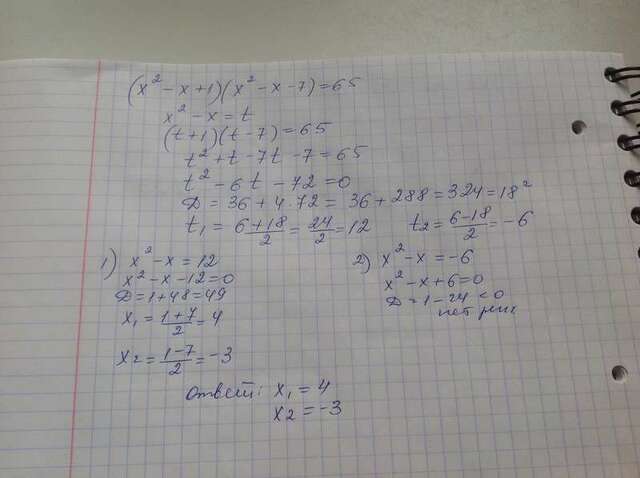 (x² - x + 1)(x² - x - 7) = 65
x² - x = t
(t+1)(t-7) = 65
t² + t - 7t - 7 = 65
t² - 6t - 72 = 0
D = 36 + 4·72 = 36 + 288 = 324 = 18²
t₁ = (6+18)/2 = 24/2 = 12 t₂ = (6-18)/2 = -6
1) x² - x = 12
x² - x - 12 = 0
D = 1 + 48 = 49
x₁ = (1+7)/2 = 4
x₂ = (1-7)/2 = -3
2) x² - x = -6
x² - x + 6 = 0
D = 1 - 24 < 0
нет реш
Ответ: x₁ = 4
x₂ = -3